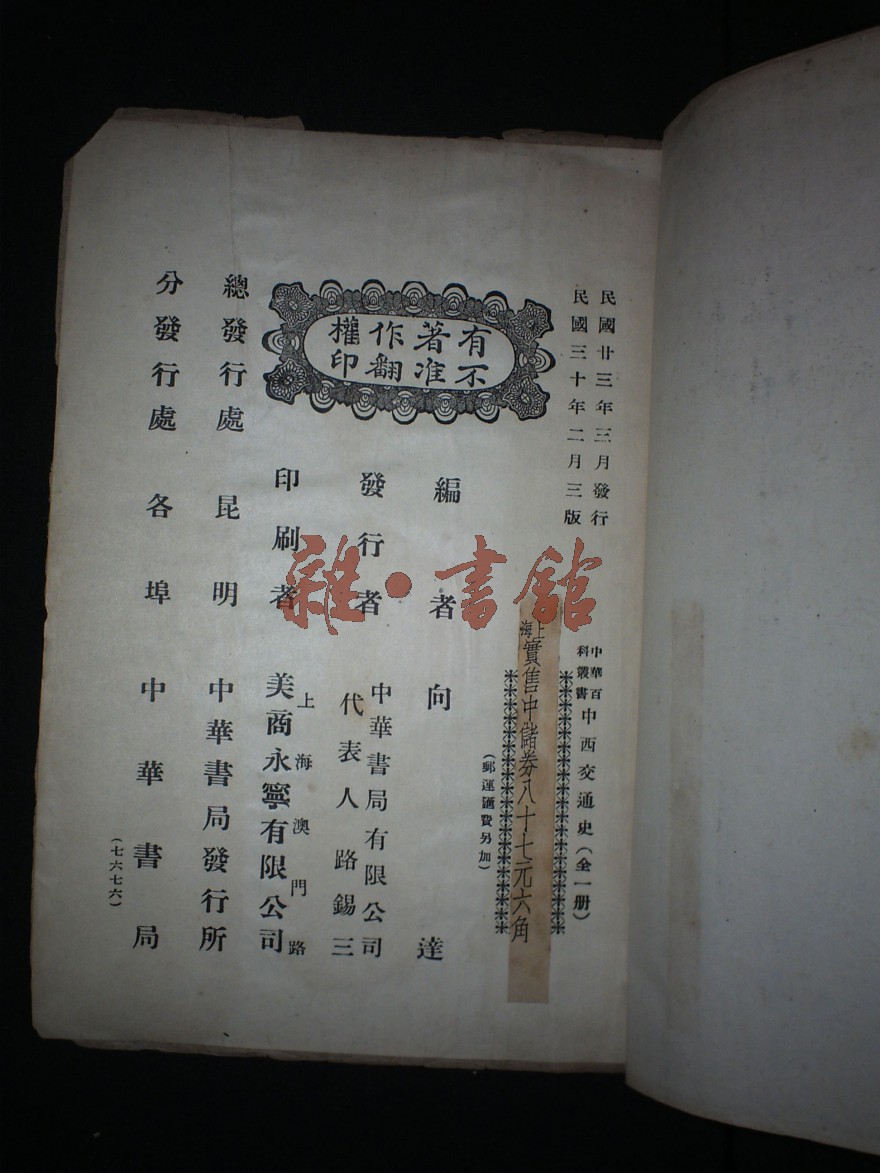 民國廿三年三月發行
民國三十年二月三版
中華百科叢書
中西交通史(全一册)
上海實售中儲券八十七元六角
(郵運匯費另加)
有著作權
不准翻印
編者 向達
發行者 中華書局有限公司
代表人路錫三
印刷者 上海澳門路
美商永寧有限公司
總發行處 昆明 中華書局發行所
分發行處 各埠 中華書局
(七六七六)
雜·書館